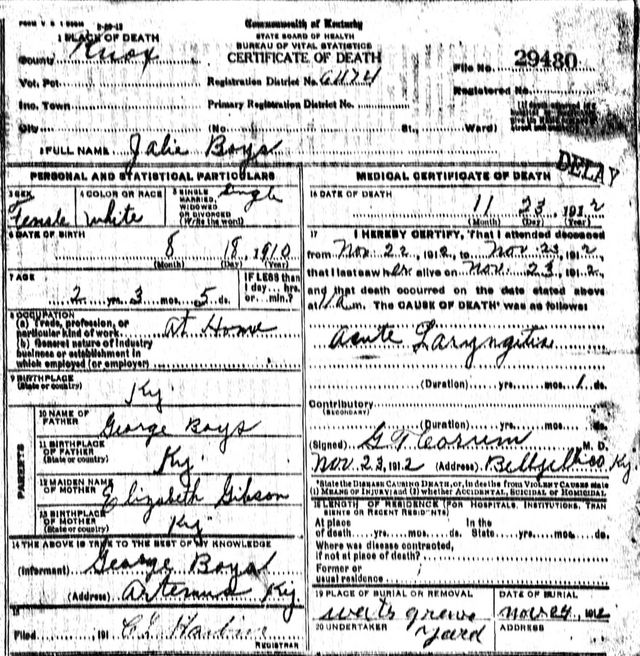 FORM V S 1
Commonwealth of Kentucky
STATE BOARD OF HEALTH
BUREAU OF VITAL STATISTICS
CERTIFICATE OF DEATH
1 PLACE OF DEATH
County Knox
Vot. Pct.
Inc. Town
City
Registration District No. 61174
Primary Registration District No.
(No. St., Ward)
File No. 29480
Registered No.
2 FULL NAME Jalie Boys
DELAY
PERSONAL AND STATISTICAL PARTICULARS
3 SEX Female
4 COLOR OR RACE White
5 SINGLE, MARRIED, WIDOWED OR DIVORCED (Write the word) Single
6 DATE OF BIRTH
8 18, 1910
(Month) (Day) (Year)
7 AGE
2 yrs. 3 mos. 5 ds.
IF LESS than 1 day... hrs. or... min.?
8 OCCUPATION
(a) Trade, profession, or particular kind of work At Home
(b) General nature of industry business or establishment in which employed (or employer)
9 BIRTHPLACE
(State or country) Ky
PARENTS
10 NAME OF FATHER George Boys
11 BIRTHPLACE OF FATHER (State or country) Ky.
12 MAIDEN NAME OF MOTHER Elizabeth Gibson
13 BIRTHPLACE OF MOTHER (State or country) Ky
14 THE ABOVE IS TRUE TO THE BEST OF MY KNOWLEDGE
(Informant) George Boys
(Address) Artemus Ky
15
Filed 191
REGISTRAR
MEDICAL CERTIFICATE OF DEATH
16 DATE OF DEATH
11 23, 1912
(Month) (Day) (Year)
17 I HEREBY CERTIFY, That I attended deceased
from Nov. 22, 1912, to Nov 23, 1912
that I last saw her alive on Nov. 23, 1912,
and that death occurred on the date stated above
at m. The CAUSE OF DEATH* was as follows:
Acute Laryngitis
(Duration) yrs. mos. 1 ds.
Contributory
(SECONDARY)
(Duration) yrs. mos. ds.
(Signed) G T Corum M. D.
Nov. 23, 1912 (Address) Ky.
*State the DISEASE CAUSING DEATH, or, in deaths from VIOLENT CAUSES state
(1) MEANS OF INJURY; and (2) whether ACCIDENTAL, SUICIDAL OR HOMICIDAL.
18 LENGTH OF RESIDENCE (FOR HOSPITALS, INSTITUTIONS, TRANSIENTS OR RECENT RESIDENTS)
At place of death yrs. mos. ds. In the State yrs. mos. ds.
Where was disease contracted,
if not at place of death?
Former or
usual residence
19 PLACE OF BURIAL OR REMOVAL
grave yard
DATE OF BURIAL
Nov 24, 1912
20 UNDERTAKER
ADDRESS